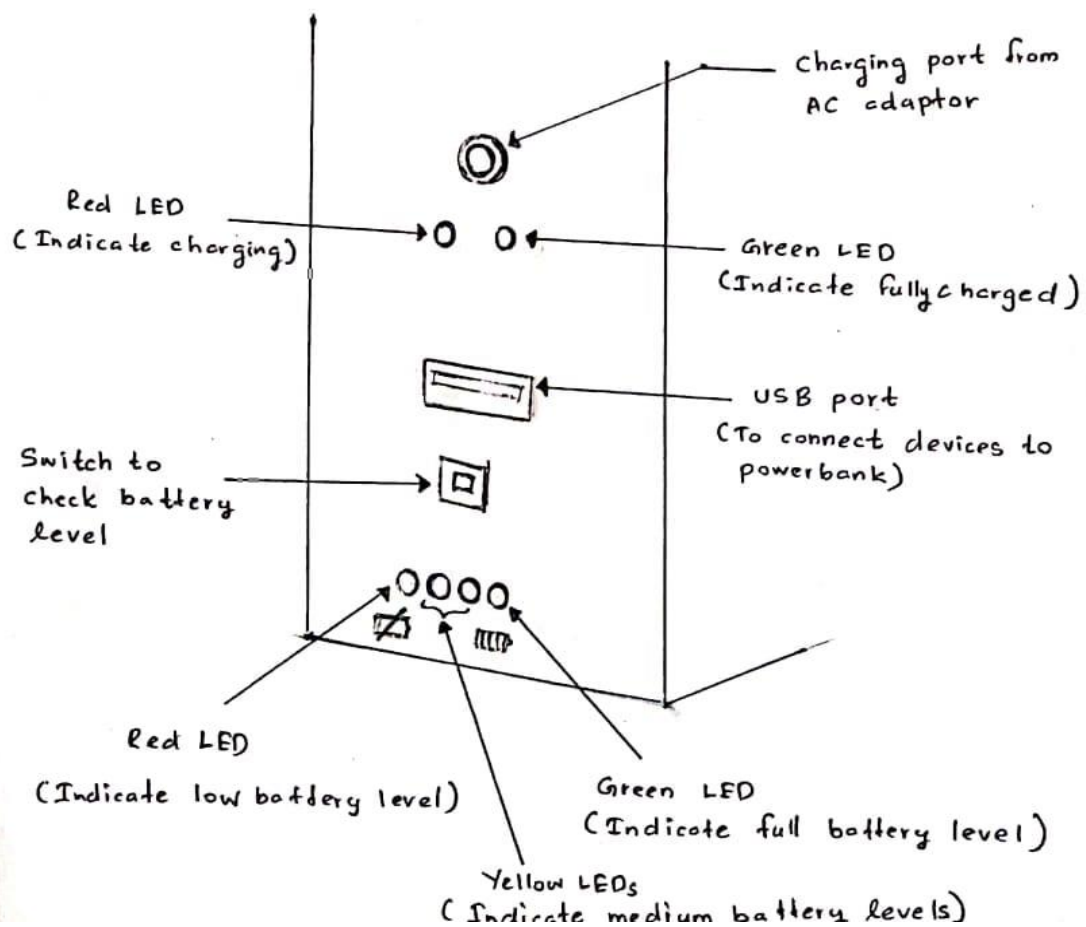 Charging port from
AC adaptor
Red LED
(Indicate charging)
Green LED
(Indicate fully charged)
USB port
(To connect devices to
powerbank)
Switch to
check battery
level
Red LED
(Indicate low battery level)
Green LED
(Indicate full battery level)
Yellow LEDs
(Indicate medium battery levels)